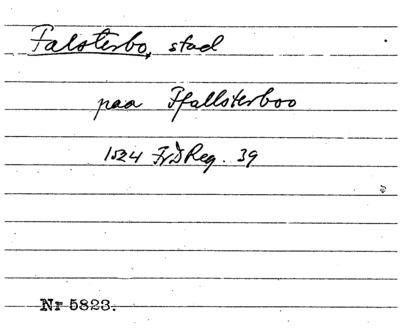 Falsterbo, stad
paa Ffallsterboo
1524 FrIReg. 39
Nr 5823.